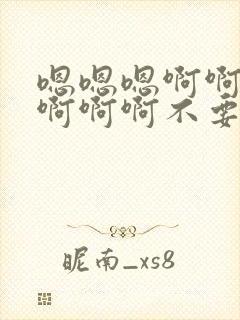 嗯嗯嗯啊啊
啊啊啊不要
昵南_xs8